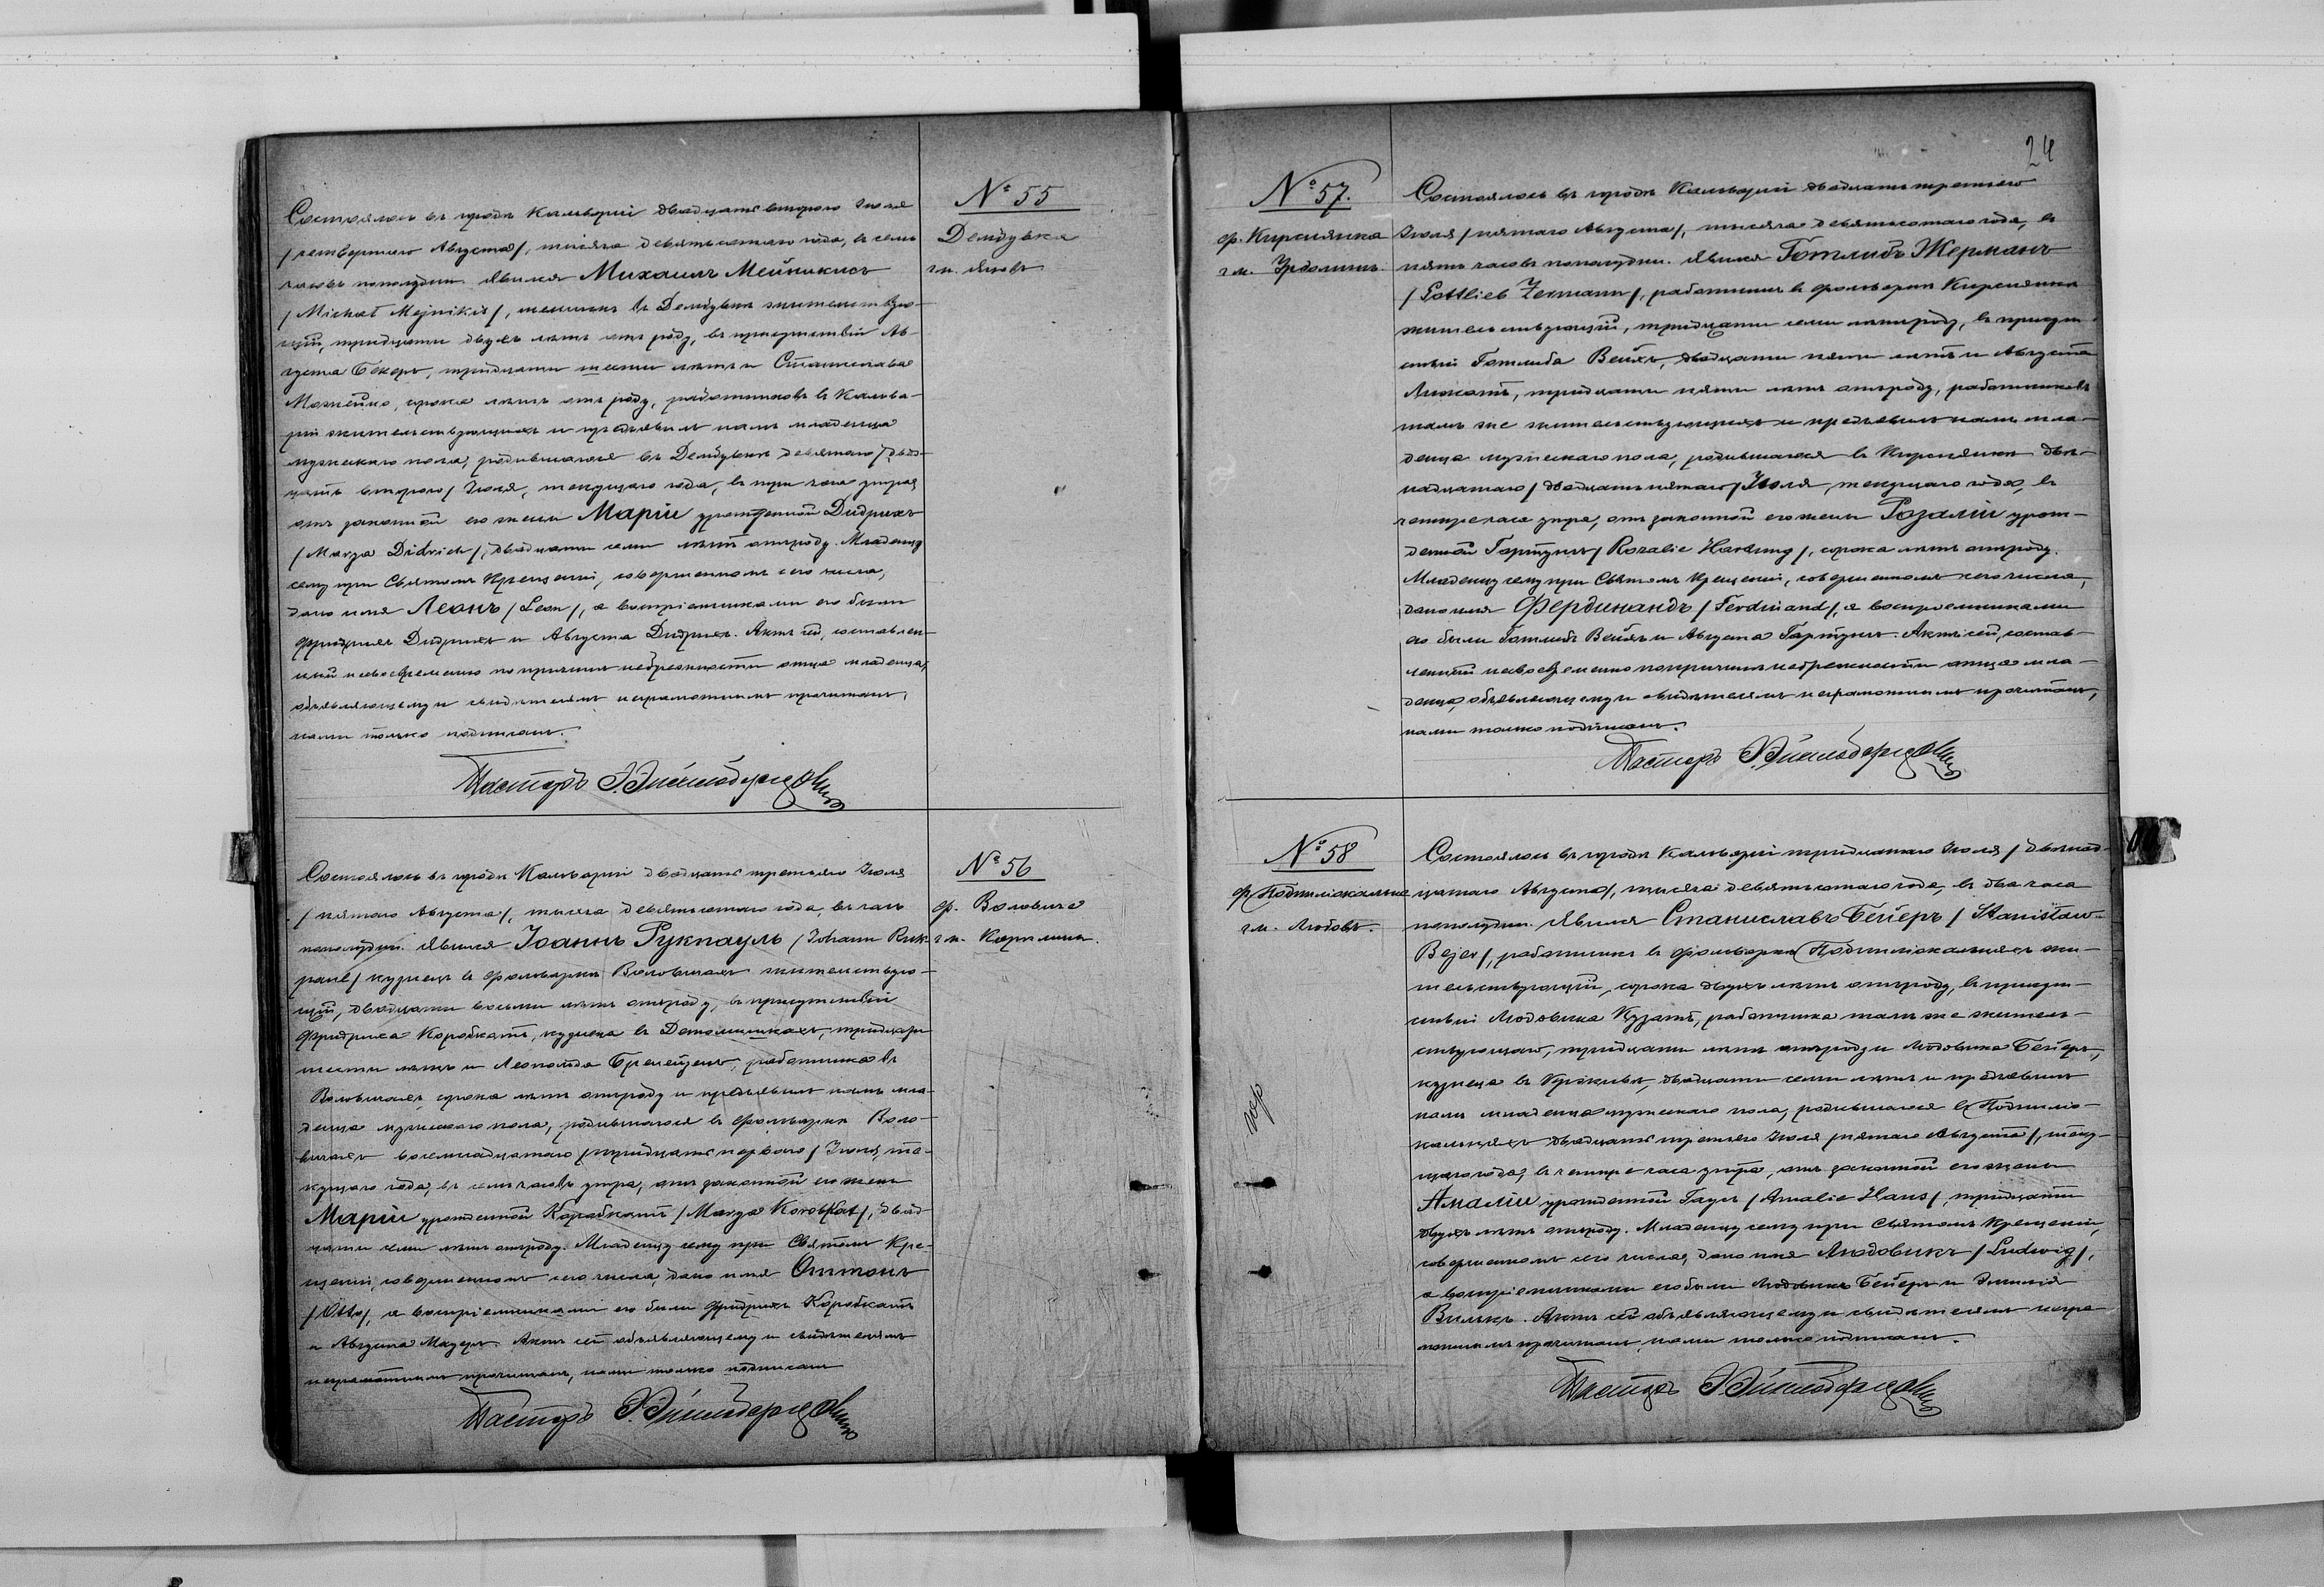 № 55
Дембувка
гм. Янов
Состоялось въ городѣ Кальваріи двадцать второго Іюля
/четвертаго Августа/, тысяча девятьсотаго года, въ семь
часовъ пополудни. Явился Михаилъ Мейникисъ
/Michał Mejnikis/, въ Дембувкѣ жительствую-
щій, тридцати двухъ лѣтъ отъ роду, въ присутствіи Ав-
густа Бекеръ, тридцати шести лѣтъ и Станислава
Можейко, сорока лѣтъ отъ роду, работниковъ въ Кальва-
ріи жительствующихъ и предъявилъ намъ младенца
мужескаго пола, родившагося въ Дембувкѣ девятаго /двад-
цать второго/ Іюля, текущаго года, въ три часа утра,
отъ законной его жены Маріи урожденной Дидрихъ
/Marya Didrich/, двадцати семи лѣтъ отъ роду. Младенцу
сему при Святомъ Крещеніи, совершенномъ сего числа,
дано имя Леонъ /Leon/, а воспріемниками его были
Фридрихъ Дидрихъ и Августа Дидрихъ. Актъ сей, составлен-
ный несвоевременно по причинѣ небрежности отца младенца,
объявляющему и свидѣтелямъ неграмотнымъ прочитанъ,
нами только подписанъ.
Пасторъ
№ 56
ф. Воловиче
гм.
Состоялось въ городѣ Кальваріи двадцать третьяго Іюля
/пятаго Августа/, тысяча девятьсотаго года, въ часъ
пополудни. Явился Іоаннъ Рукпауль /Johann Ruk-
paul/ кузнецъ въ фольваркѣ Воловичахъ жительствую-
щій, двадцати восьми лѣтъ отъ роду, въ присутствіи
Фридриха Коробкатъ, кузнеца въ тридцати
шести лѣтъ и Леопольда работника въ
Воловичахъ, сорока лѣтъ отъ роду и предъявилъ намъ мла-
денца мужескаго пола, родившагося въ фольваркѣ Воло-
вичахъ восемнадцатаго /тридцать перваго/ Іюля, те-
кущаго года, въ семь часовъ утра, отъ законной его жены
Маріи урожденной Коробкатъ /Marya Korobkat/, двад-
цати семи лѣтъ отъ роду. Младенцу сему при Святомъ Кре-
щеніи, совершенномъ сего числа, дано имя Оттонъ
/Otto/, а воспріемниками его были Фридрихъ Коробкатъ
и Августа Мазуръ. Актъ сей объявляющему и свидѣтелямъ
неграмотнымъ прочитанъ, нами только подписанъ
Пасторъ
24
№ 57.
ф. Кирснянка
гм.
Состоялось въ городѣ Кальваріи двадцать третьяго
Іюля /пятаго Августа/, тысяча девятьсотаго года, въ
пять часовъ пополудни. Явился Готлибъ Жерманъ
/Gottlieb Zermann/, работникъ въ фольваркѣ Кирснянка
жительствующій, тридцати семи лѣтъ отъ роду, въ присут-
ствіи Готлиба двадцати пяти лѣтъ и Августа
тридцати пяти лѣтъ отъ роду, работниковъ
тамъ же жительствующихъ и предъявилъ намъ мла-
денца мужескаго пола, родившагося въ Кирснянкѣ двѣ-
надцатаго /двадцать пятаго/ Іюля, текущаго года, въ
четыре часа утра, отъ законной его жены Розаліи урож-
денной Гартунгъ /Rozalie Hardung/, сорока лѣтъ отъ роду.
Младенцу сему при Святомъ Крещеніи, совершенномъ сего числа,
дано имя Фердинандъ /Ferdinand/, а воспріемниками
его были Готлибъ и Августа Гартунгъ. Актъ сей, состав-
ленный несвоевременно по причинѣ небрежности отца мла-
денца, объявляющему и свидѣтелямъ неграмотнымъ прочитанъ,
нами только подписанъ.
Пасторъ
№ 58
гм. Любовъ.
Состоялось въ городѣ Кальваріи тридцатаго Іюля /двѣнад-
цатаго Августа/, тысяча девятьсотаго года, въ два часа
пополудни. Явился Станиславъ Бейеръ /Stanisław
Bejer/, работникъ въ фольваркѣ жи-
тельствующій, сорока двухъ лѣтъ отъ роду, въ присут-
ствіи Людовика работника тамъ же жительс-
ствующаго, тридцати лѣтъ отъ роду и Людовика Бейеръ,
кузнеца въ двадцати семи лѣтъ и предъявилъ
намъ младенца мужескаго пола, родившагося въ
двадцать третьяго Іюля /пятаго Августа/, теку-
щаго года, въ четыре часа утра, отъ законной его жены
Амаліи урожденной Гаусъ /Amalie Haus/, тридцати
двухъ лѣтъ отъ роду. Младенцу сему при Святомъ Крещеніи,
совершенномъ сего числа, дано имя Людовикъ /Ludwig/,
а воспріемниками его были Людовикъ Бейеръ и Эмилія
Вилькъ. Актъ сей объявляющему и свидѣтелямъ негра-
мотнымъ прочитанъ, нами только подписанъ.
Пасторъ